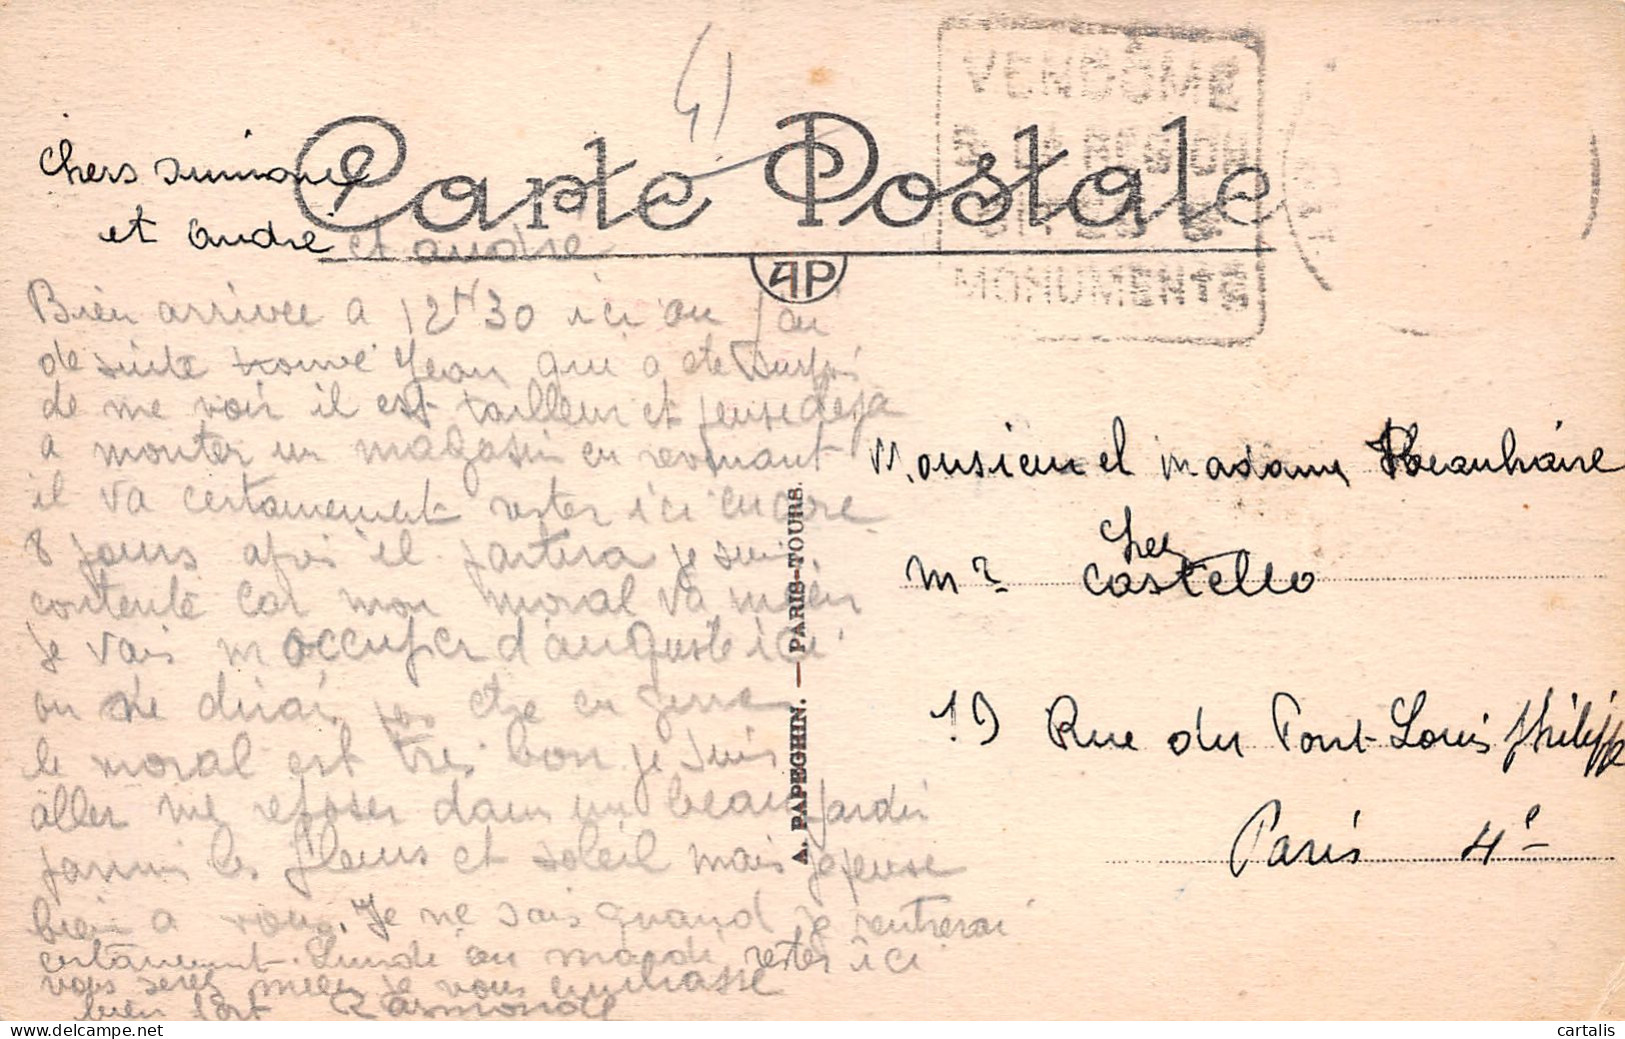 4)
Carte Postale
VENDÔME
MONUMENTS
AP
Chers
et andré
et andré
Bien arrivée a 12H30 ici on J'ai
de suite trouvé Jean qui a ete surpris
de me voir il est tailleur et pense deja
a monter un magasin en revenant
il va certainement rester ici encore
8 jours apres il partira je suis
contente car mon moral va mieux
je vais m'occuper d'auguste ici
on ne dirai pas etre en guerre
le moral est tres bon je suis
aller me reposer dans un beau jardin
parmi les fleurs et soleil mais je pense
bien a vous. Je ne sais quand je rentrerai
certainement Lundi ou mardi rester ici
vous serez mieux je vous embrasse
bien fort Raymonde
A. PAPEGHIN. — PARIS-TOURS.
Monsieur et madame
chez
Mr Castello
19 Rue du Pont-Louis Philippe
Paris 4e
cartalis